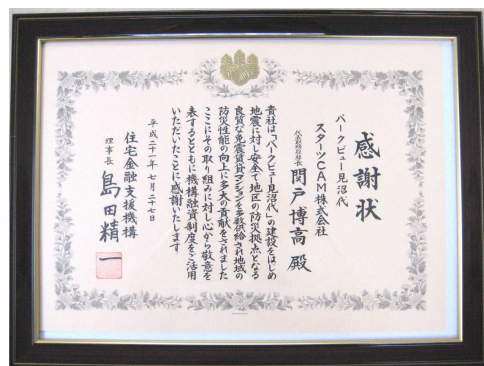 感謝状
パークビュー見沼代
スターツCAM株式会社
代表取締役社長 関戸博高 殿
貴社は「パークビュー見沼代」の建設をはじめ
地震に対し安全で地区の防災拠点となる
良質な免震賃貸マンションを多数供給され地域の
防災性能の向上に多大の貢献をされました
ここにその取り組みに対し心から敬意を
表するとともに機構融資制度をご活用
いただいたことに感謝いたします
平成二十一年七月二十七日
住宅金融支援機構
理事長 島田精一